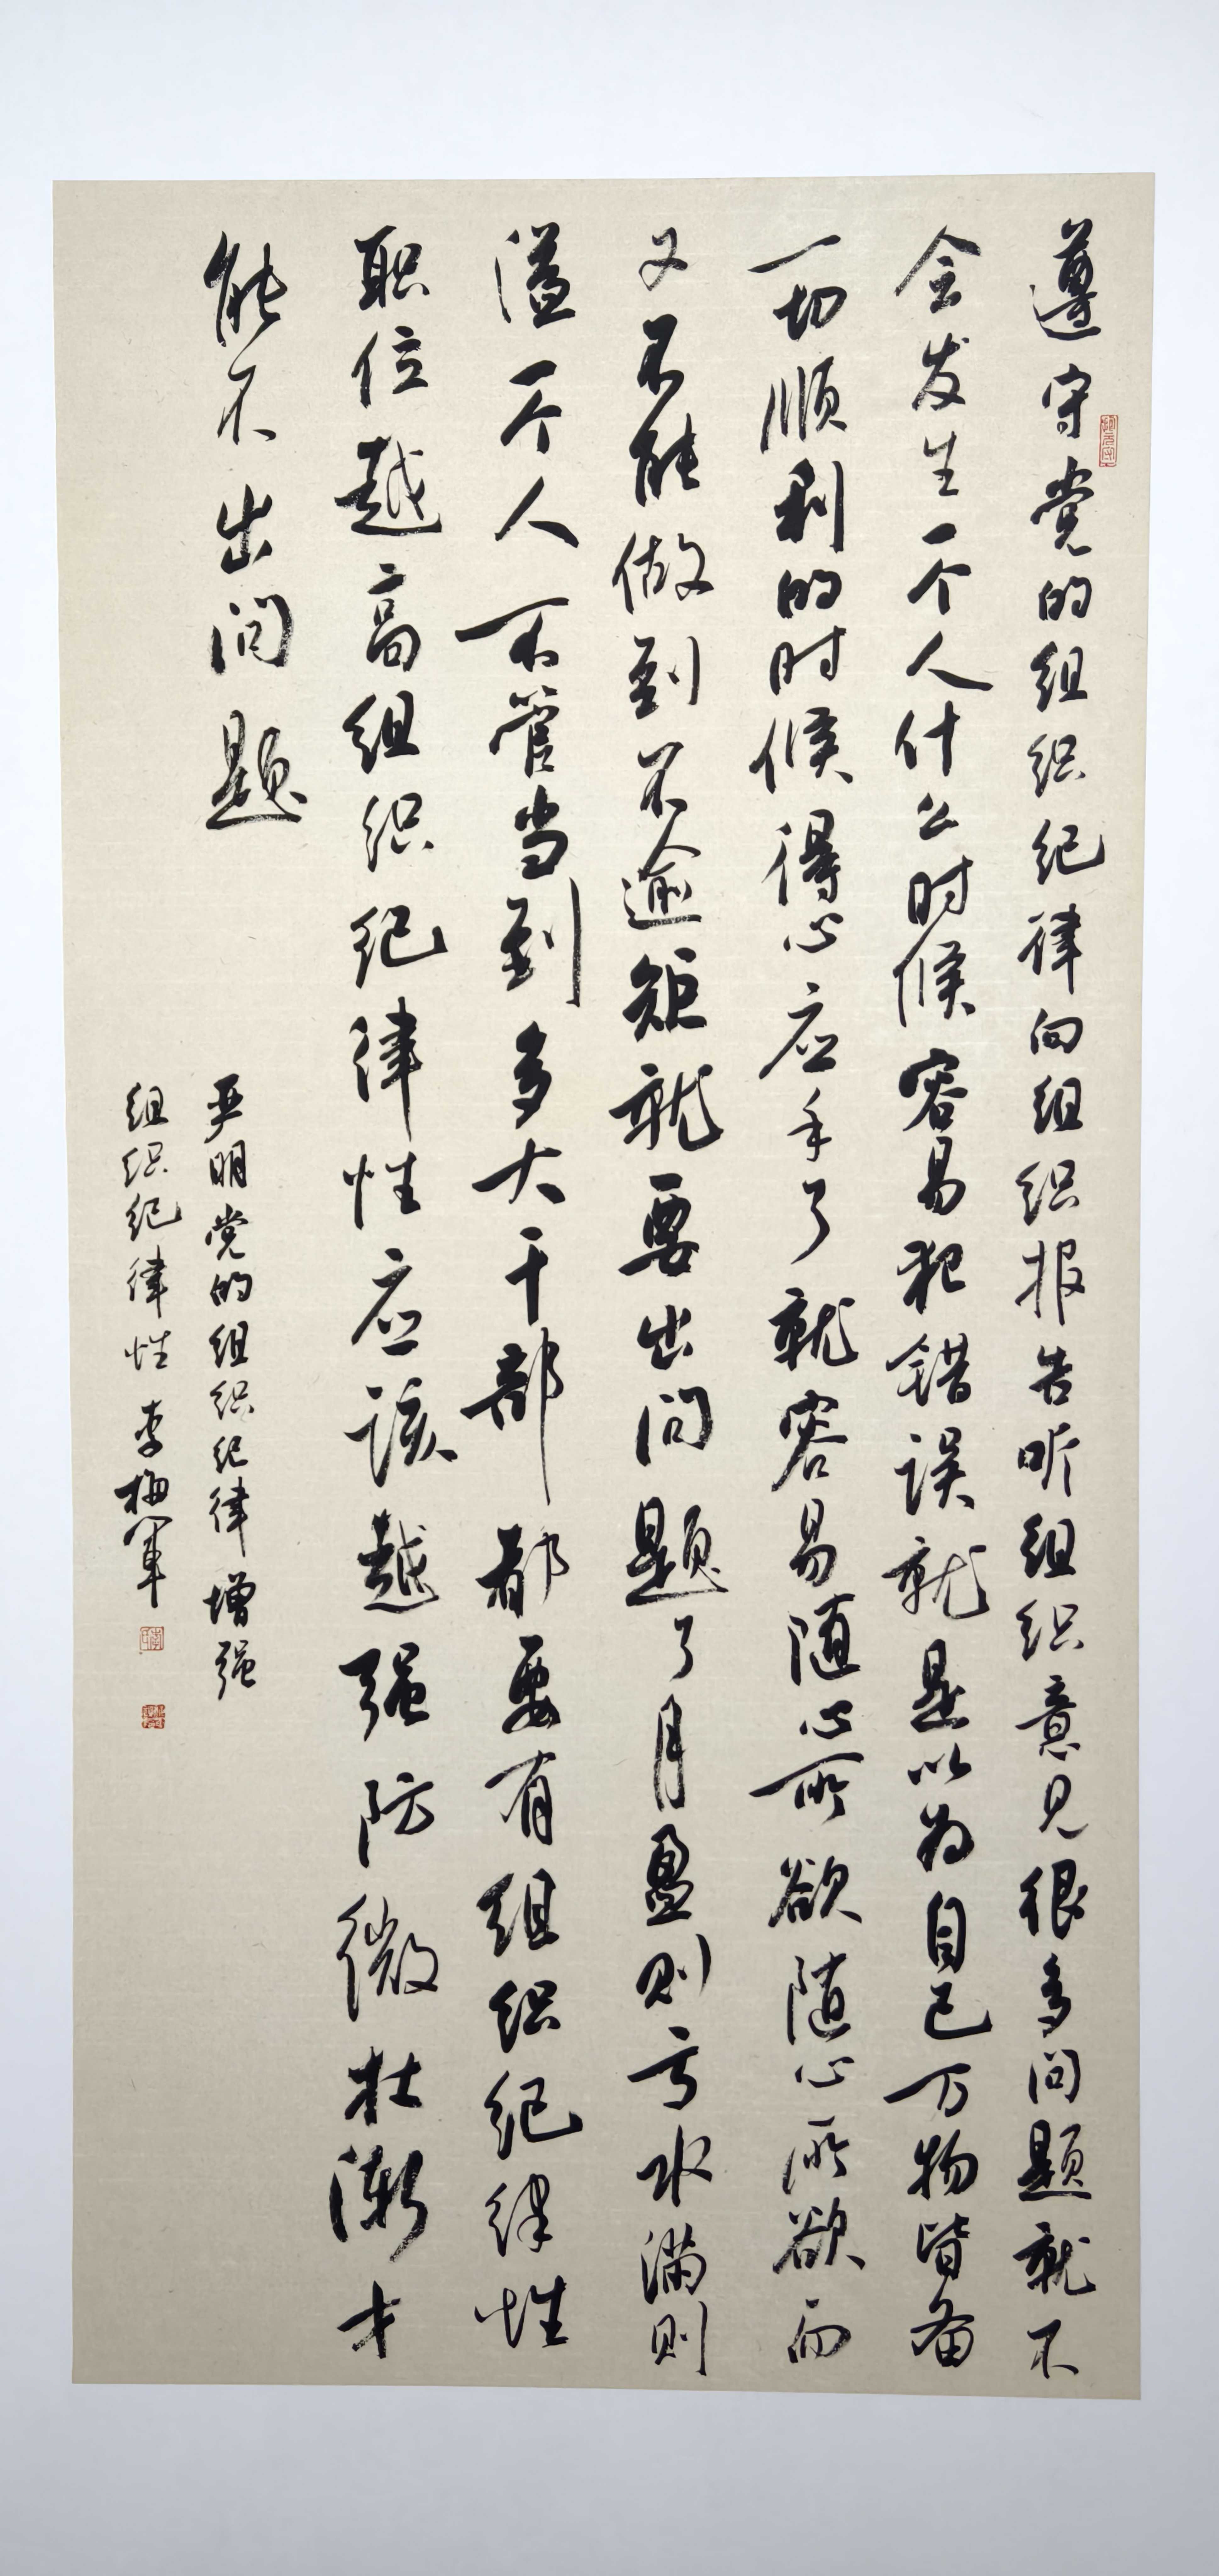 遵守党的组织纪律向组织报告听组织意见很多问题就不
会发生一个人什么时候容易犯错误就是以为自己万物皆备
一切顺利的时候得心应手了就容易随心所欲随心所欲而
又不能做到不逾矩就要出问题了月盈则亏水满则
溢一个人不管当到多大干部都要有组织纪律性
职位越高组织纪律性应该越强防微杜渐才
能不出问题
严明党的组织纪律增强
组织纪律性 李梅军